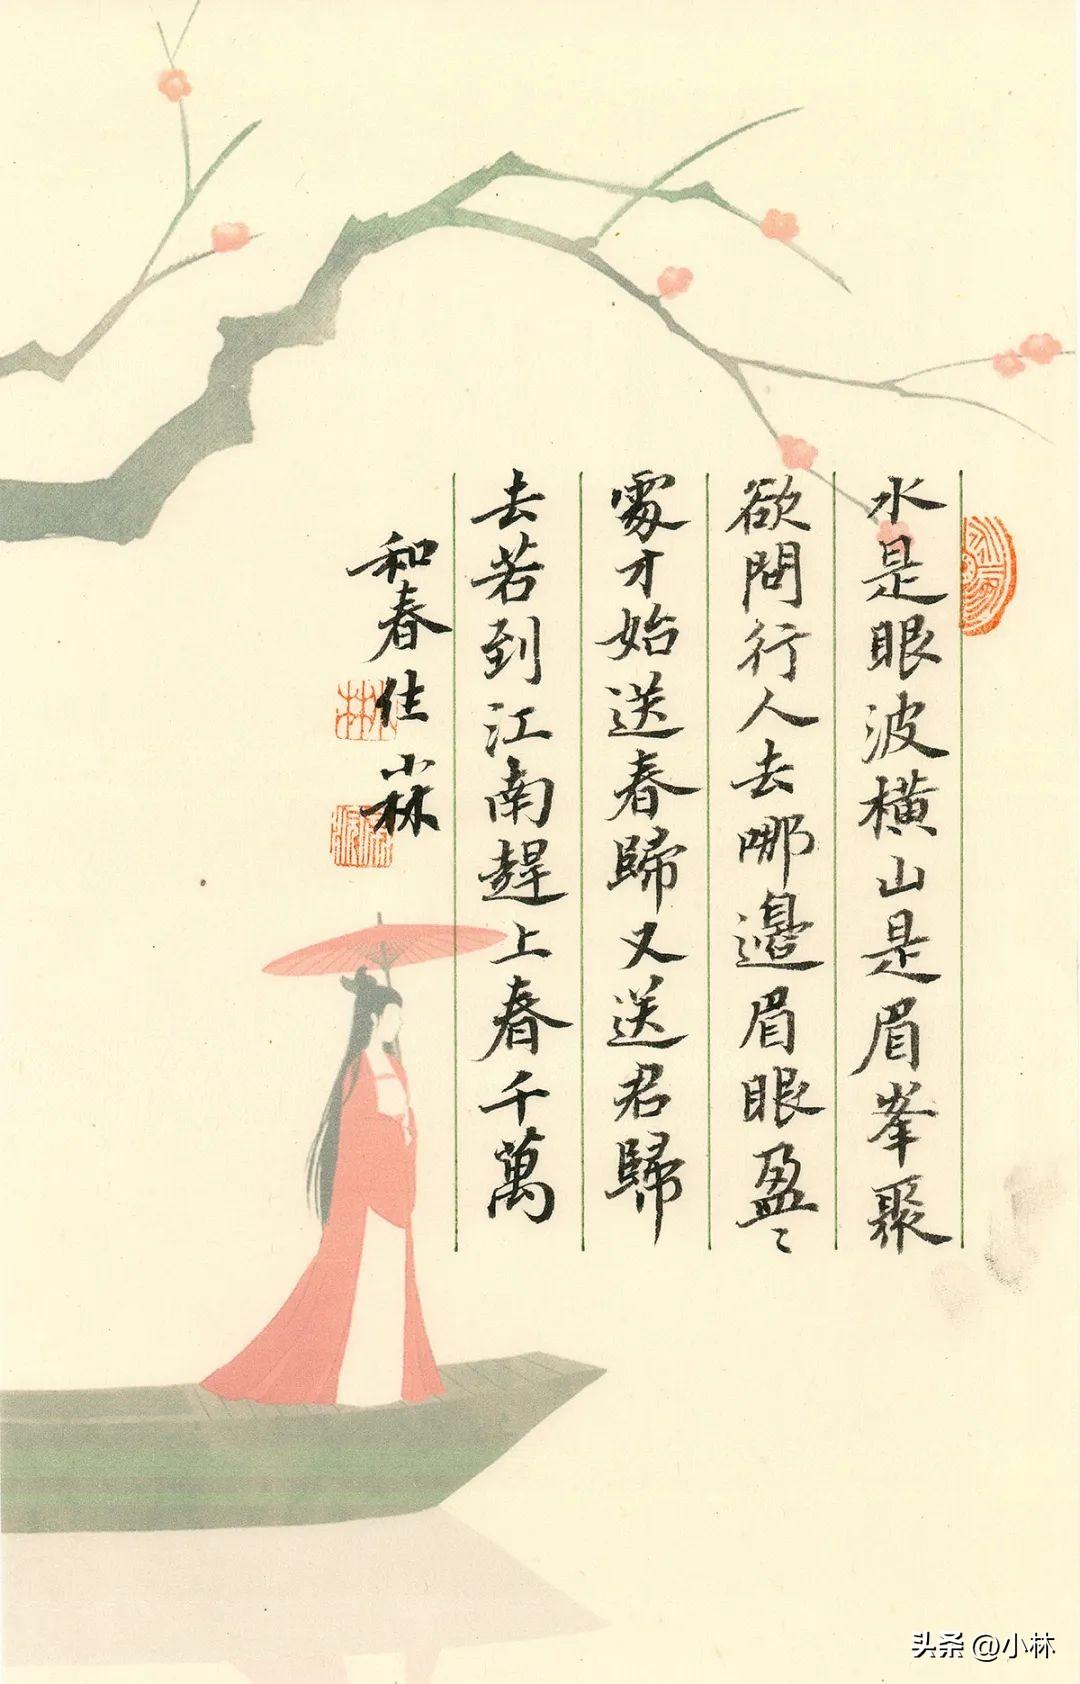 水是眼波橫山是眉峯聚
欲問行人去哪邊眉眼盈〻
處才始送春歸又送君歸
去若到江南趕上春千萬
和春住小林
林
头条 @小林